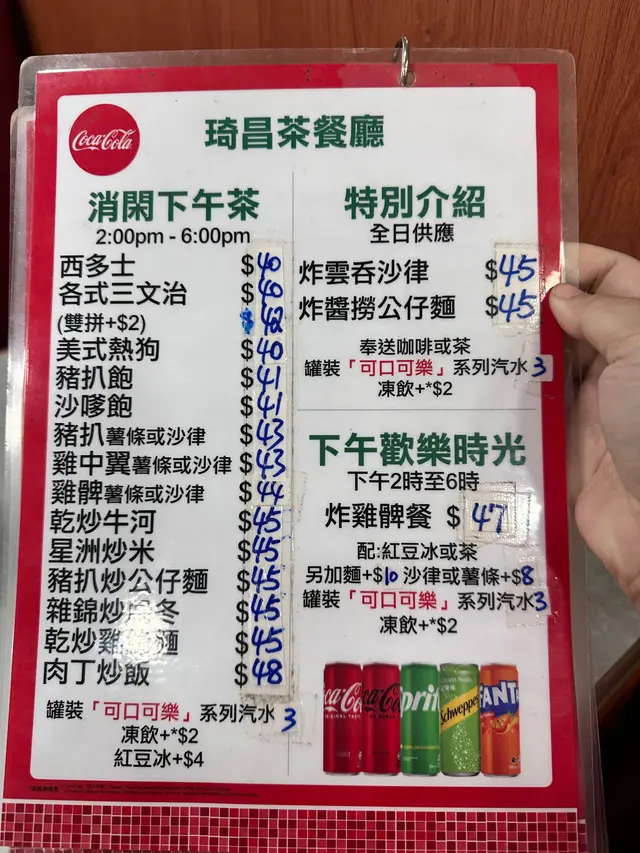 Coca-Cola
琦昌茶餐廳
消閑下午茶
2:00pm - 6:00pm
西多士 $40
各式三文治 $40
(雙拼+$2) $42
美式熱狗 $40
豬扒飽 $41
沙嗲飽 $41
豬扒薯條或沙律 $43
雞中翼薯條或沙律 $43
雞髀薯條或沙律 $44
乾炒牛河 $45
星洲炒米 $45
豬扒炒公仔麵 $45
雜錦炒 冬 $45
乾炒雞 麵 $45
肉丁炒飯 $48
罐裝「可口可樂」系列汽水 3
凍飲+*$2
紅豆冰+$4
特別介紹
全日供應
炸雲吞沙律 $45
炸醬撈公仔麵 $45
奉送咖啡或茶
罐裝「可口可樂」系列汽水 3
凍飲+*$2
下午歡樂時光
下午2時至6時
炸雞髀餐 $47
配:紅豆冰或茶
另加麵+$10 沙律或薯條+$8
罐裝「可口可樂」系列汽水 3
凍飲+*$2
Schweppes
FANTA